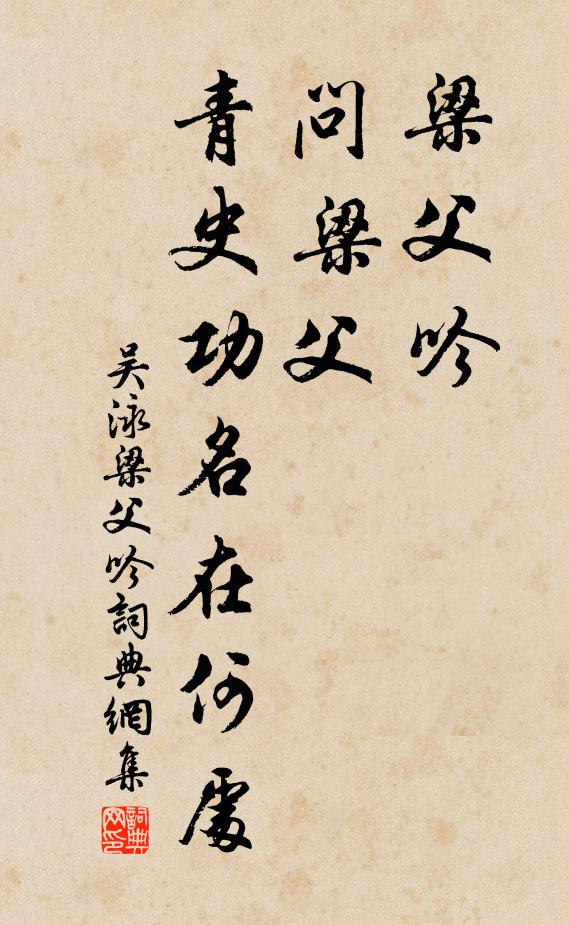 梁父吟
問梁父
青史功名在何處
吴泳梁父吟詞典網集
詞典网印